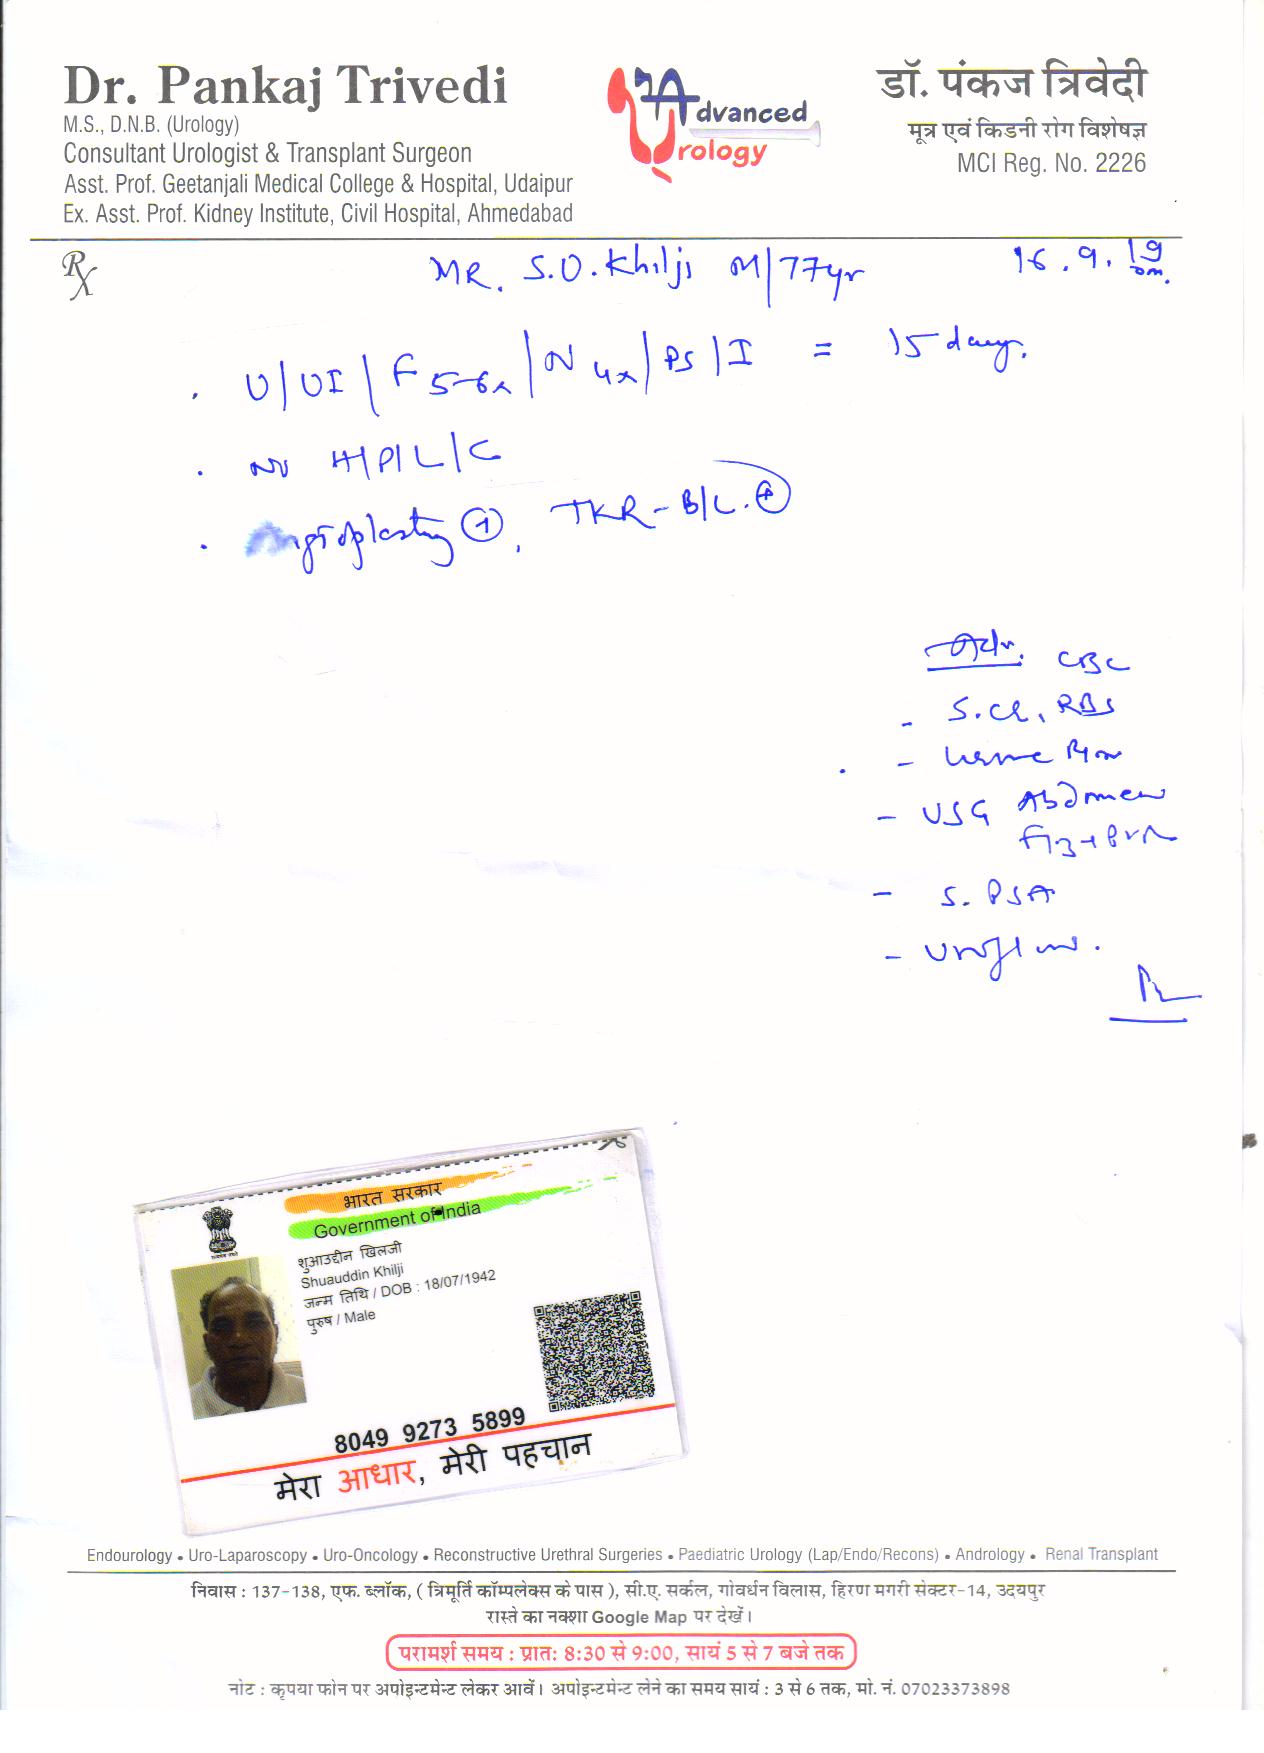 Dr. Pankaj Trivedi
M.S., D.N.B. (Urology)
Consultant Urologist & Transplant Surgeon
Asst. Prof. Geetanjali Medical College & Hospital, Udaipur
Ex. Asst. Prof. Kidney Institute, Civil Hospital, Ahmedabad
Advanced
Urology
डॉ. पंकज त्रिवेदी
मूत्र एवं किडनी रोग विशेषज्ञ
MCI Reg. No. 2226
Rx
MR. S.O. Khilji M/77yr 16.9.19
. U/UI/F 5-6x/N 4x/PS/I = 15 days.
. No H/P/L/C
. Angioplasty (+), TKR - B/L. (+)
CBC
- S.Cr, RBS
- Urine
- USG Abdomen
- S. PSA
- Uroflow.
भारत सरकार
Government of India
शुआउद्दीन खिलजी
Shuauddin Khilji
जन्म तिथि / DOB : 18/07/1942
पुरुष / Male
8049 9273 5899
मेरा आधार, मेरी पहचान
Endourology • Uro-Laparoscopy • Uro-Oncology • Reconstructive Urethral Surgeries • Paediatric Urology (Lap/Endo/Recons) • Andrology • Renal Transplant
निवास : 137-138, एफ. ब्लॉक, ( त्रिमूर्ति कॉम्पलेक्स के पास ), सी.ए. सर्कल, गोवर्धन विलास, हिरण मगरी सेक्टर-14, उदयपुर
रास्ते का नक्शा Google Map पर देखें।
परामर्श समय : प्रातः 8:30 से 9:00, सायं 5 से 7 बजे तक
नोट : कृपया फोन पर अपोइन्टमेन्ट लेकर आवें। अपोइन्टमेन्ट लेने का समय सायं : 3 से 6 तक, मो. नं. 07023373898